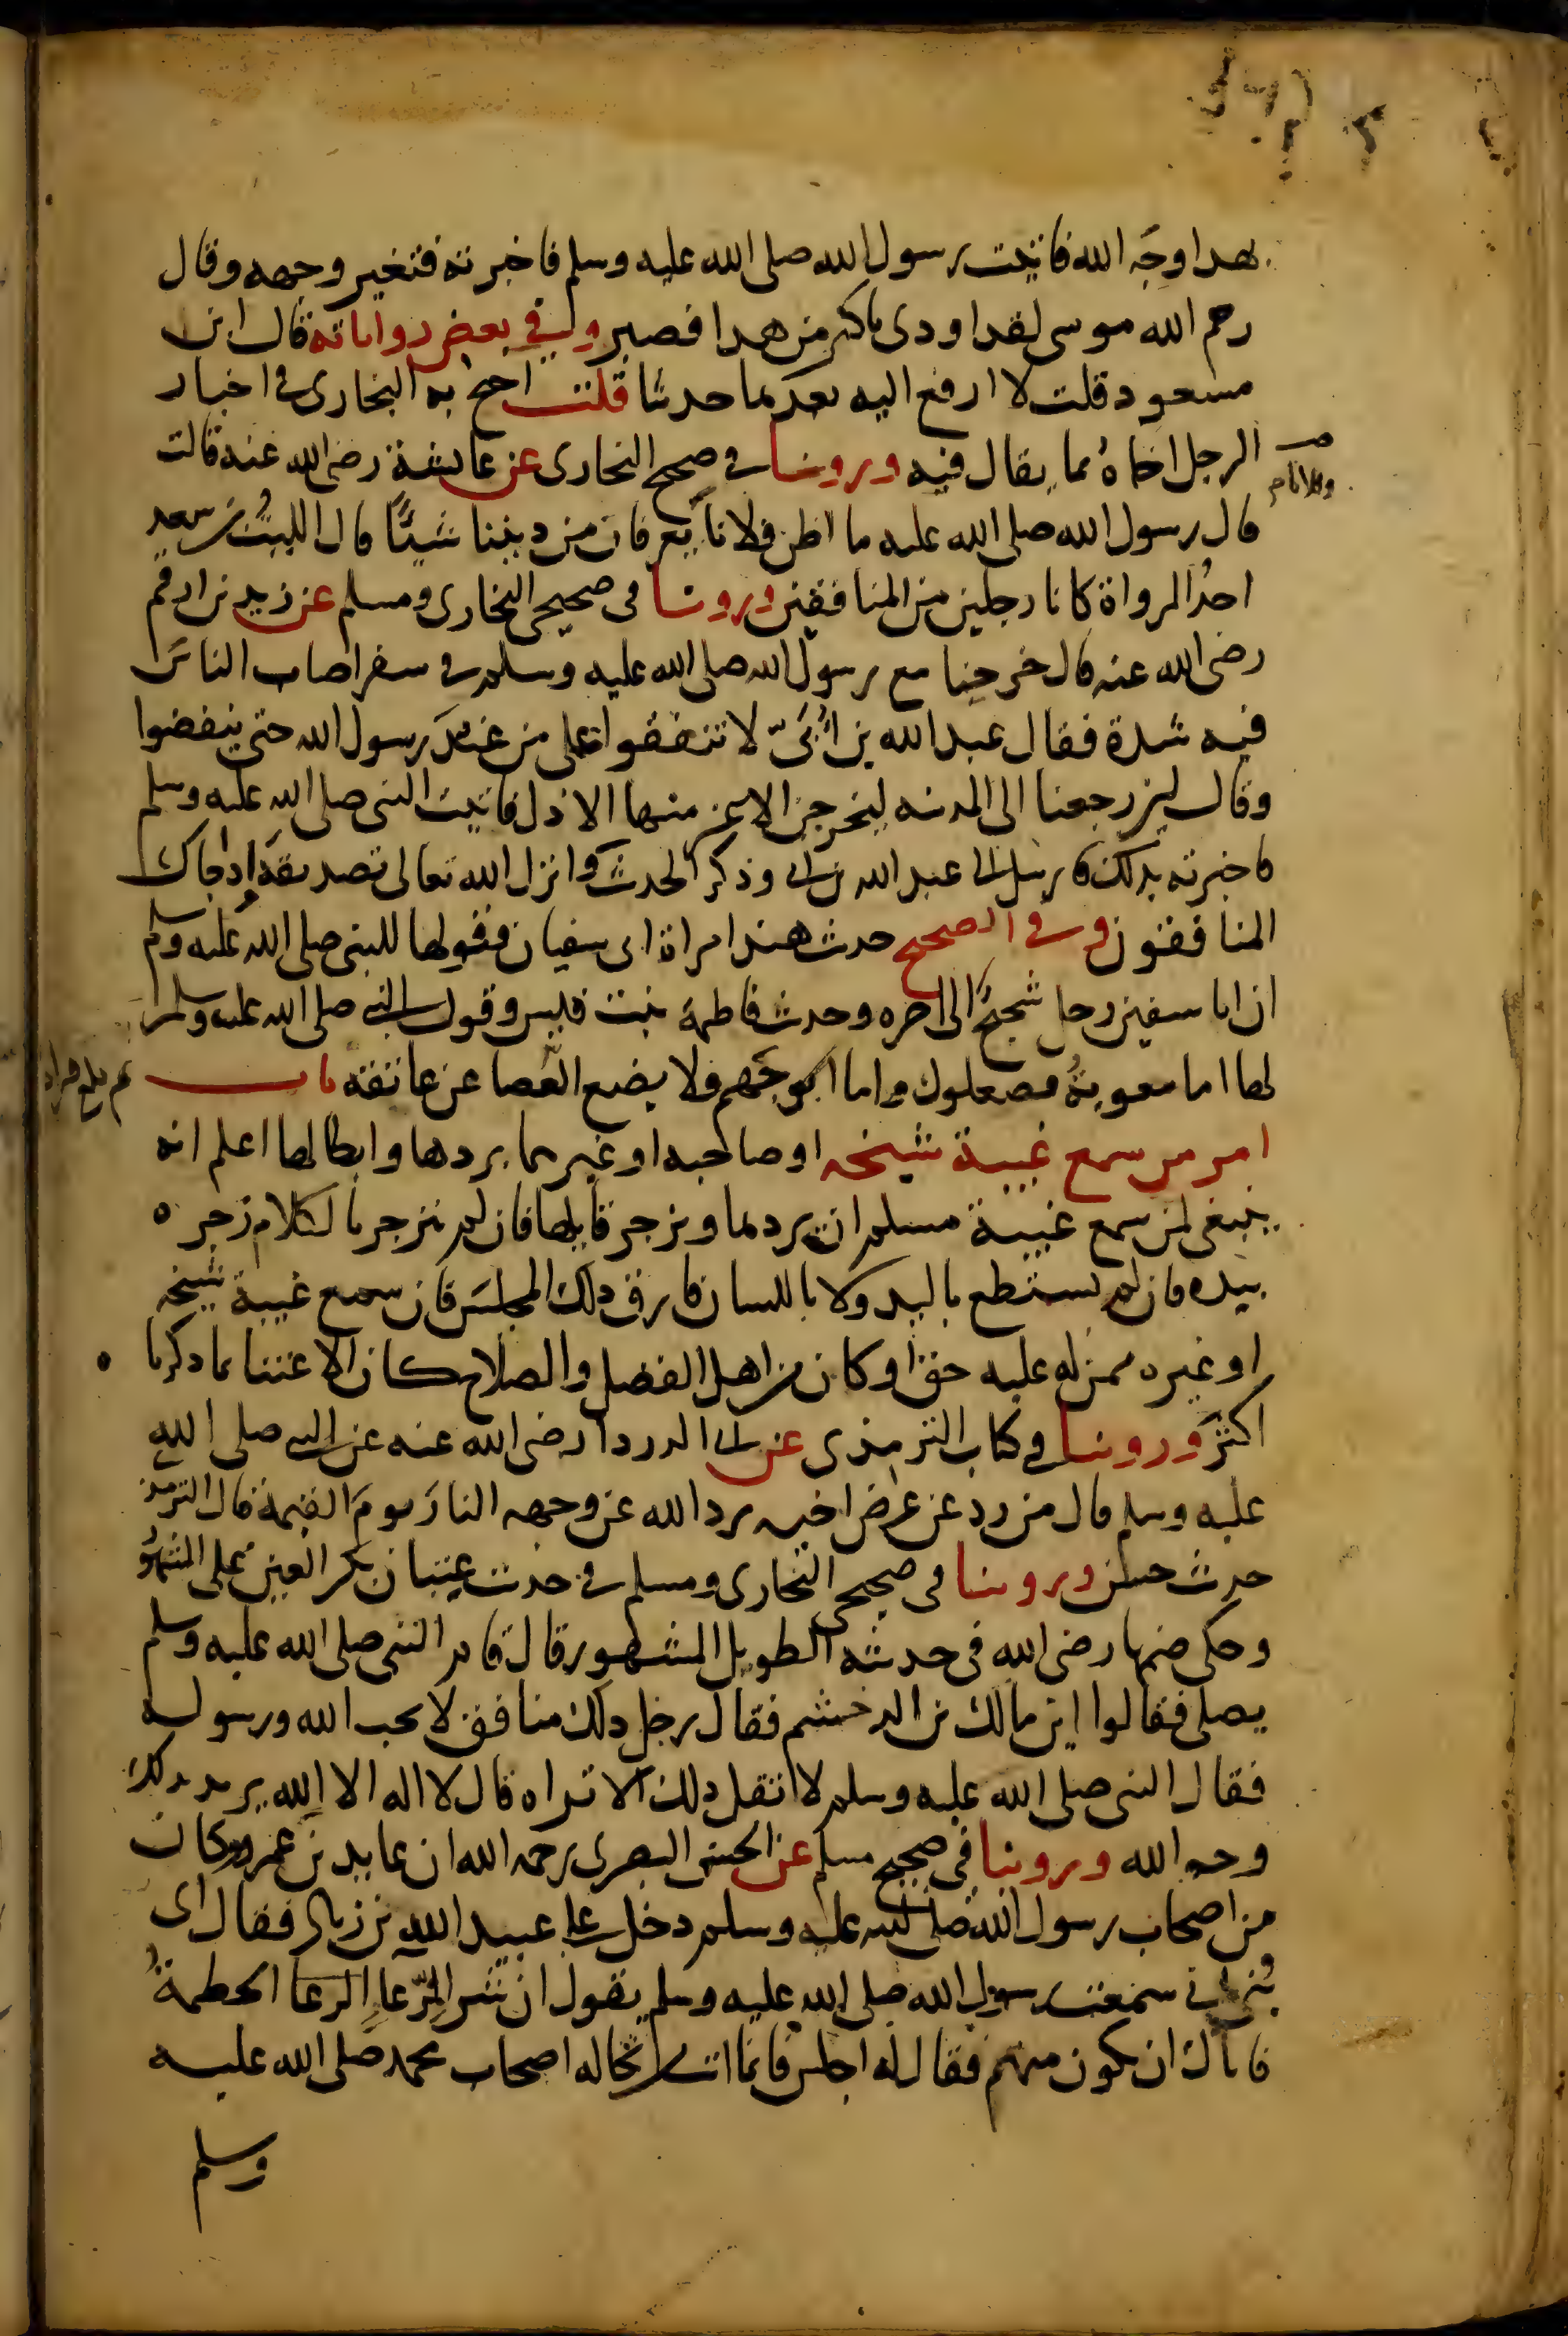 بهدا وجه الله فاتيت رسول الله صلى الله عليه وسلم فاخبرته فتغير وجهه وقال
رحم الله موسى لقد اودى باكثر من هدا فصبر وفي بعض رواياته قال ابن
مسعود قلت لا ارفع اليه بعدها حديثا قلت احتج به البخارى في اخبار
الرجل اخاه بما يقال فيه وروينا في صحيح البخارى عن عايشة رضى الله عنه قالت
قال رسول الله صلى الله عليه ما اظن فلانا يعرفان من ديننا شيًّا قال الليثُ بن سعد
احدُ الرواة كانا رجلين من المنافقين وروينا فى صحيحى البخارى ومسلم عن زيد بن ارقم
رضى الله عنه قال خرجنا مع رسول الله صلى الله عليه وسلم في سفر اصاب الناسَ
فيه شدة فقال عبد الله بن اُبَىّ لا تنفقوا على من عند رسول الله حتى ينفضوا
وقال لين رجعنا الى المدينه ليخرجن الاعز منها الاذل فاتيت النبى صلى الله عليه وسلم
فاخبرته بدلك فارسل الى عبد الله بن ابى وذكر الحديث وانزل الله تعالى تصديقه ادا جاك
المنافقون وفي الصحيح حديث هند امراة ابى سفيان وقولها للنبى صلى الله عليه وسلم
ان ابا سفين رجل شحيحٌ الى اخره وحديث فاطمة بنت قيس وقول النبى صلى الله عليه وسلم
لها اما معويةُ فصعلوك واما ابو جَهم فلا يضع العَصا عن عاتقه باب
امر من سمع غيبة شيخه او صاحبه او غيرهما بردها وابطالها اعلم انه
ينبغى لمن سمع غيبة مسلم ان يردها ويزجر قايلها فان لم ينزجر بالكلام زجره
بيده فان لم يستطع باليد ولا باللسان فارق دلك المجلسَ فان سمع غيبة شيخه
او غيره ممن له عليه حق او كان من اهل الفضل والصلاح كان الاعتنا بما دكرنا
اكثرَ وروينا في كتاب الترمذى عن ابى الدردا رضى الله عنه عن النبى صلى الله
عليه وسلم قال من رد عن عرض اخيه رد الله عن وجهه النارَ يومَ القيمة قال الترمذى
حديث حسن وروينا فى صحيحى البخارى ومسلم في حديث عتبان بكسر العين على المشهور
وحكى ضمها رضى الله فى حديثه الطويل المشهور قال قام النبى صلى الله عليه وسلم
يصلى فقالوا اين مالك بن الدخشم فقال رجل دلك منافق لا يحب الله ورسوله
فقال النبى صلى الله عليه وسلم لا تقل دلك الا تراه قال لا اله الا الله يريد بدلك
وجه الله وروينا فى صحيح مسلم عن الحسن البصرى رحمه الله ان عايد بن عمرو وكان
من اصحاب رسول الله صلى الله عليه وسلم دخل على عبيد الله بن زياد فقال اى
بُنى انى سمعت رسول الله صلى الله عليه وسلم يقول ان شر الرِّعاءِ الرعا الحطمةُ
فاياك ان تكون منهم فقال له اجلس فانما انت من نخاله اصحاب محمد صلى الله عليه
وسلم